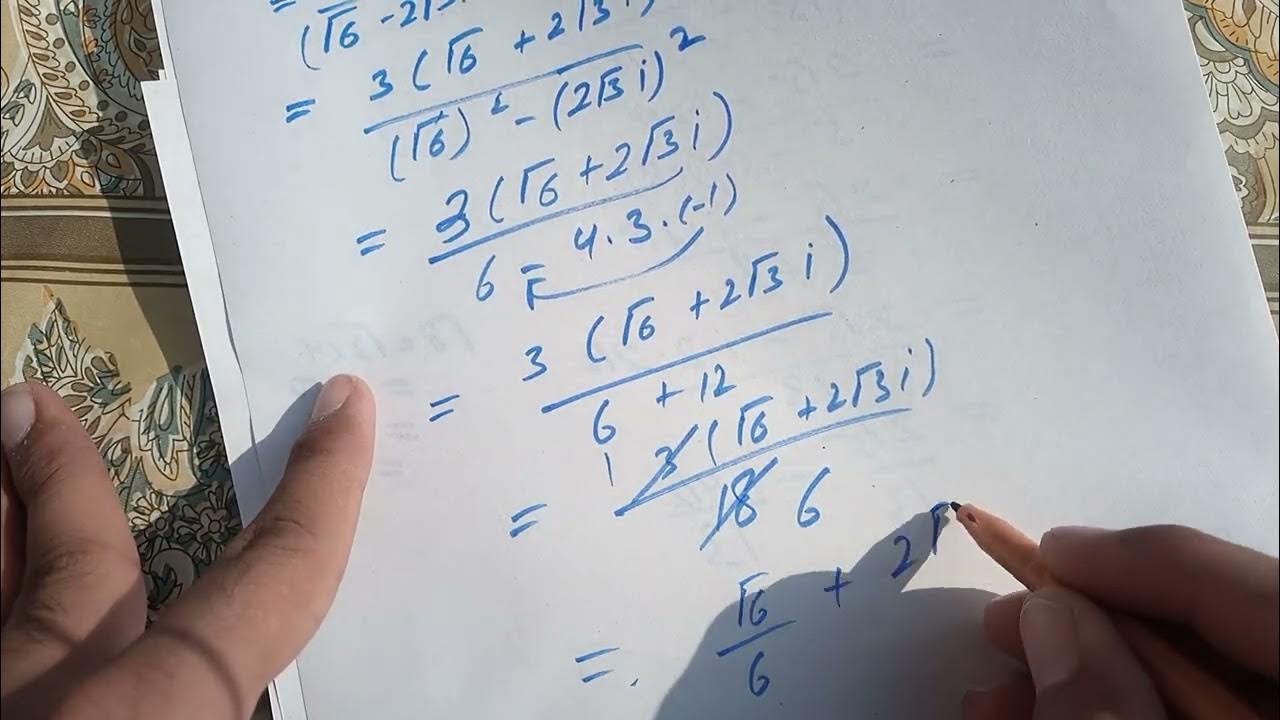 = (√6 - 2√3
= 3 (√6 + 2√3 i) / (√6)² - (2√3 i)²
= 3 (√6 + 2√3 i) / 6 - 4 · 3 · (-1)
= 3 (√6 + 2√3 i) / 6 + 12
= 1 3 (√6 + 2√3 i) / 18 6
= . √6 / 6 + 2√